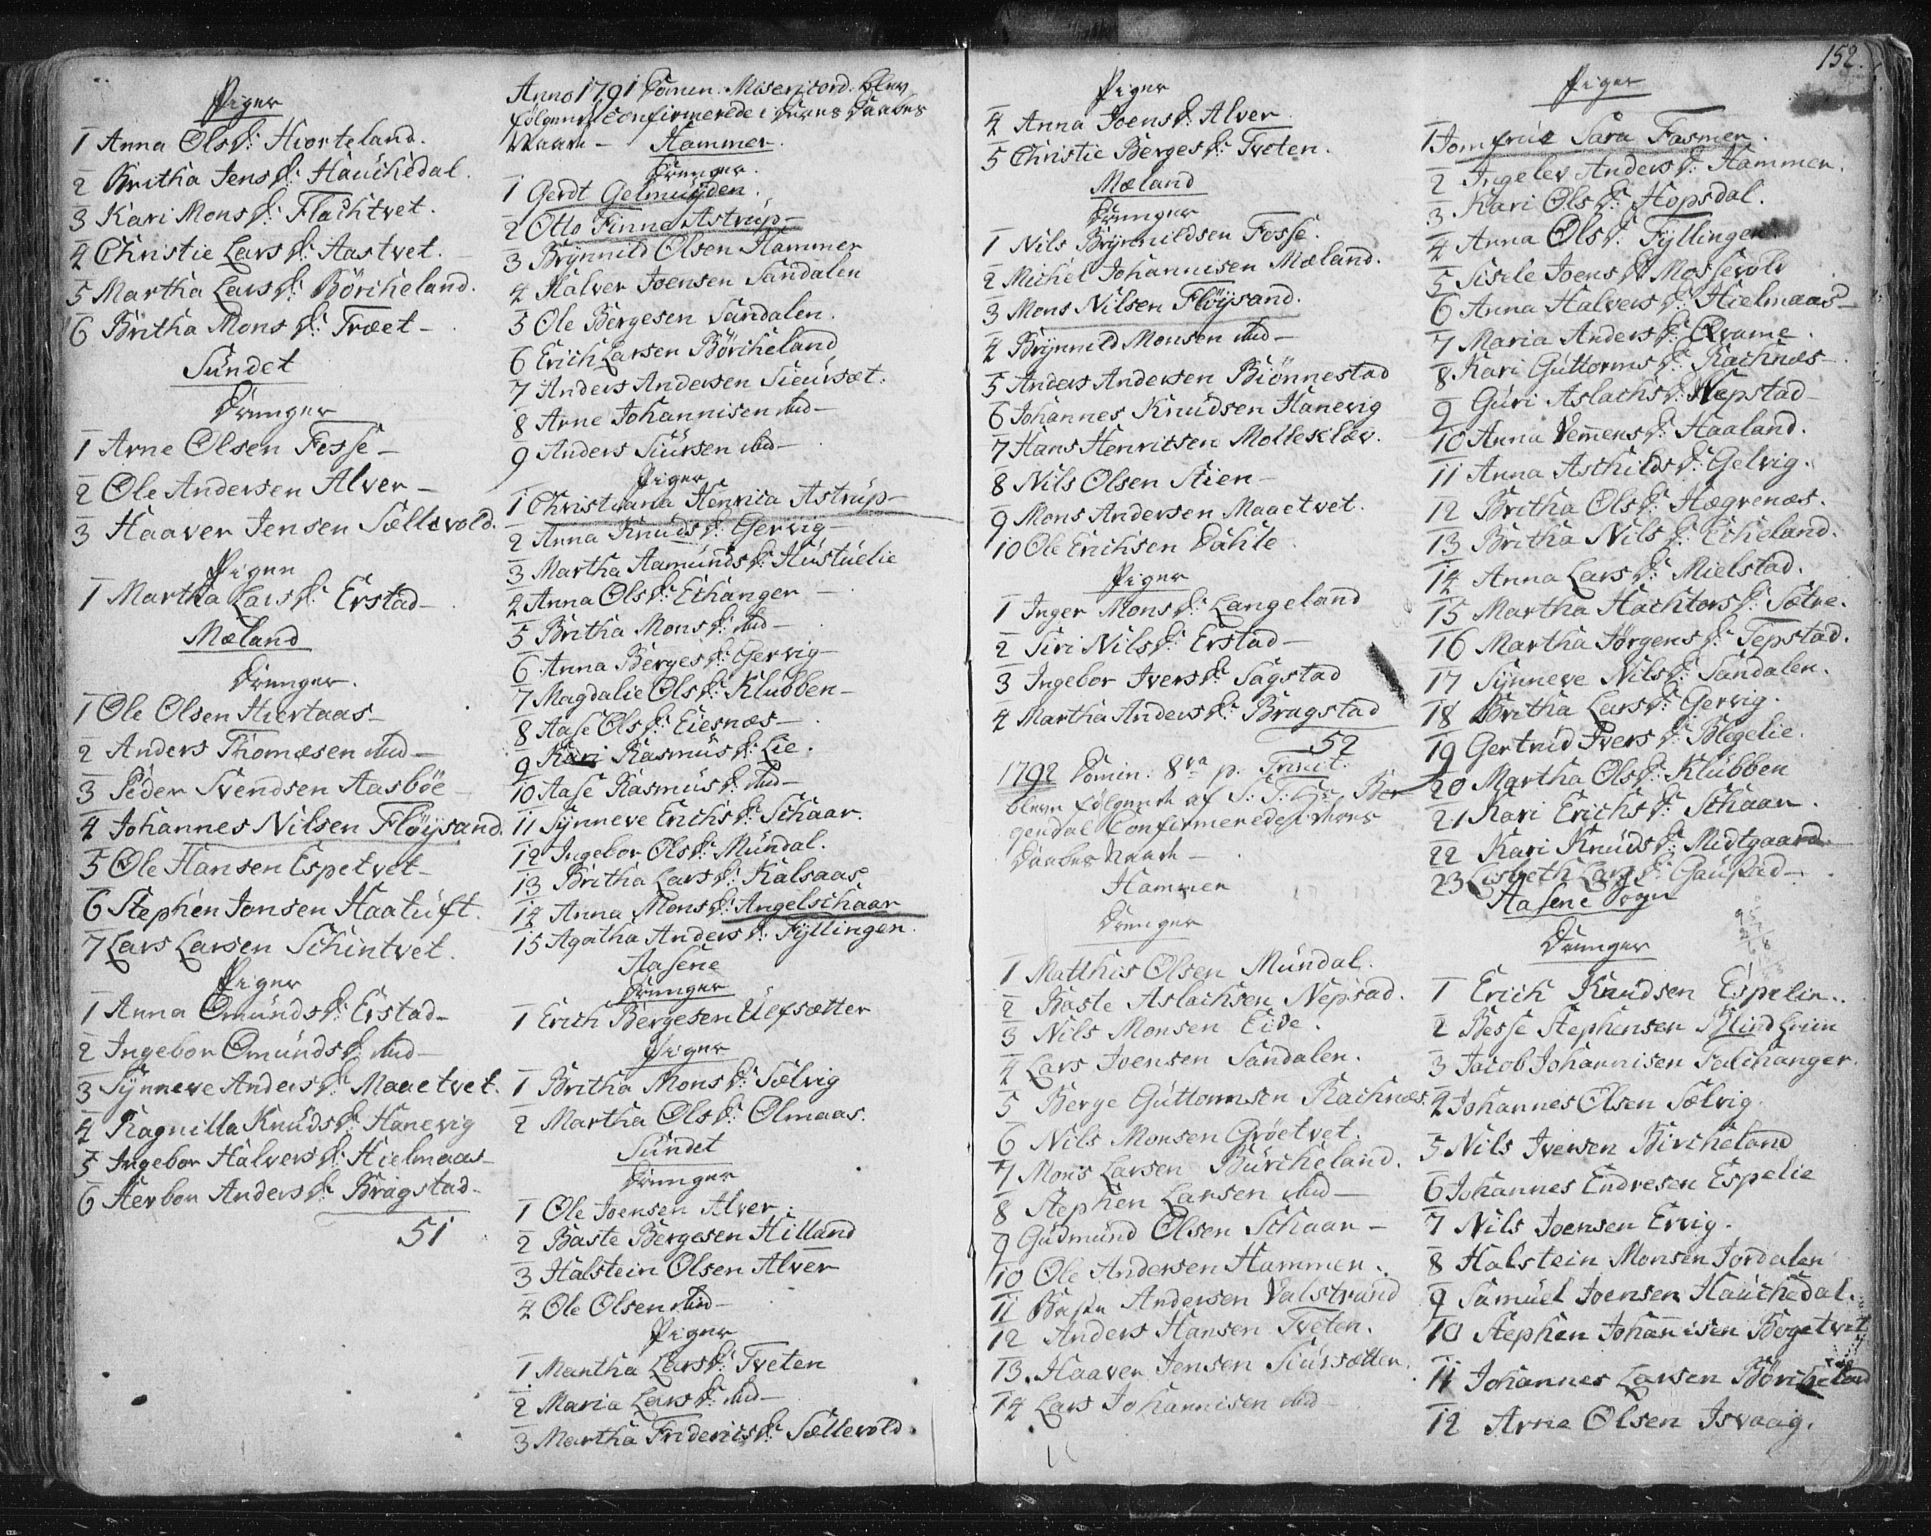 Piger
1 Anna Olsd: Hiorteland.
2 Britha Jensd: Hauchedal.
3 Kari Monsd: Flachtvet.
4 Christie Larsd: Aastvet.
5 Martha Larsd: Börcheland.
6 Britha Monsd: Træet
Sundet
Drenger
1 Arne Olsen Fosse
2 Ole Andersen Alver
3 Haaver Jensen Sællevold.
Piger
1 Martha Larsd: Erstad
Mæland
Drenger.
1 Ole Olsen Hiertaas
2 Anders Thomæsen ibid
3 Peder Svendsen Aasböe
4 Johannes Nilsen Flöysand.
5 Ole Hansen Espetvet
6 Stephen Jonsen Haatuft.
7 Lars Larsen Schintvet.
Piger
1 Anna Omundsd: Erstad
2 Ingebor Omundsd: ibid
3 Synneve Andersd: Maaetvet.
4 Ragnilla Knudsd: Hanevig
5 Ingebor Halversd: Hielmaas
6 Herbor Andersd: Bragstad
51
Anno 1791 Domin. Misericord. blev
fölgende confirmerede i deres Daabes
Naade - Hammer.
Drenger.
1 Gerdt Gelmuyden.
2 Otto Finne Astrup
3 Brynnild Olsen Hammer
4 Halver Joensen Sandalen
5 Ole Bergesen Sandalen.
6 Erich Larsen Börcheland
7 Anders Andersen Siursæt.
8 Arne Johannisen ibid
9 Anders Siursen ibid
Piger
1 Christiana Henrica Astrup
2 Anna Knudsd: Gervig
3 Martha Aamundsd: Hustuelie
4 Anna Olsd: Echanger
5 Britha Monsd: ibid
6 Anna Bergesd: Gervig
7 Magdalie Olsd: Klubben
8 Aase Olsd: Eiesnæs
9 Kari Rasmusd: Lie.
10 Aase Rasmusd: ibid
11 Synneve Erichsd: Schaar.
12 Ingebor Olsd: Mundal.
13 Britha Larsd: Kalsaas
14 Anna Monsd: Angelschaar
15 Agatha Andersd: Fyllingen.
Aasene
Drenger
1 Erich Bergesen Ulfsætter
Piger
1 Britha Monsd: Sælvig
2 Martha Olsd: Olmaas.
Sundet
Drenger
1 Ole Joensen Alver.
2 Baste Bergesen Hilland
3 Halstein Olsen Alver
4 Ole Olsen ibid
Piger
1. Martha Larsd: Tveten
2 Maria Larsd: ibid
3 Martha Fridericsd: Sællevold.
Piger
4 Anna Joensd: Alver.
5 Christie Bergesd: Tveten.
Mæland
Drenger
1 Nils Brynnildsen Fosse.
2 Michel Johannisen Mæland.
3 Mons Nilsen Flöysand.
4 Brynnild Monsen ibid
5 Anders Andersen Biönnestad
6 Johannes Knudsen Hanevig
7 Hans Henricsen Molleklev.
8 Nils Olsen Stien
9 Mons Andersen Maaetvet.
10 Ole Erichsen Dahle
Piger
1 Inger Monsd: Langeland
2 Siri Nilsd: Erstad
3 Ingebor Iversd: Sagstad
4 Martha Andersd: Bragstad
52
1792 Domin: 8va p. Trinit.
bleve fölgende af S: T: Hr: Ber
gendal Confirmerede i deres
Daabes Naade
Hammer
Drenger
1 Matthis Olsen Mundal.
2 Baste Aslachsen Nepstad.
3 Nils Monsen Eide.
4 Lars Joensen Sandalen.
5 Berge Guttormsen Rachnæs.
6 Nils Monsen Gröetvet
7 Mons Larsen Burcheland.
8 Stephen Larsen ibid
9 Gudmund Olsen Schaar
10 Ole Andersen Hammer.
11 Andersen Valstrand
12 Anders Hansen Tveten.
13. Haaver Jensen Siursætter.
14 Lars Johannisen ibid
152.
Piger
1 Jomfrue Sara Fasmer.
2 Ingelev Andersd: Hammer.
3 Kari Olsd: Hopsdal.
4 Anna Olsd: Fyllingen
5 Sisele Joensd: Mossevold
6 Anna Halversd: Hielmaas
7 Maria Andersd: Qvame.
8 Kari Guttormsd: Rachnæs
9 Guri Aslachsd: Nepstad
10 Anna Vemmensd: Haaland.
11 Anna Asthildsd: Gelvig.
12 Britha Olsd: Hægrenæs.
13 Britha Nilsd: Echeland.
14 Anna Larsd: Mielstad.
15 Martha Hachtorsd: Sætre.
16 Martha Jörgensd: Tepstad.
17 Synneve Nilsd: Sandalen.
18 Britha Larsd: Gervig.
19 Gertrud Iversd: Blegelie.
20 Martha Olsd: Klubben
21 Kari Erichsd: Schaar.
22 Kari Knudsd: Midtgaard
23 Lisbeth Larsd: Gaustad
Aasene Sogn
Drenger
1 Erich Knudsen Espelie.
2 Besse Stephensen Blindheim
3 Jacob Johannisen Sechanger.
4 Johannes Olsen Sælvig.
5 Nils Iversen Bircheland
6 Johannes Endresen Espelie
7 Nils Joensen Ervig.
8 Halstein Monsen Jordalen
9 Samuel Joensen Hauchedal.
10 Stephen Johannisen Bogetvet
11 Johannes Larsen Börcheland
12 Arne Olsen Isvaag.